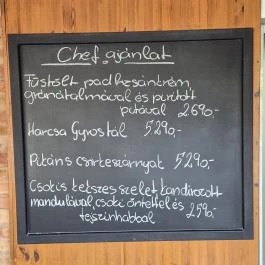 Chef ajánlat
Füstölt padlizsánkrém
gránátalmával és pirított
pitával 2.690,-
Harcsa Gyros tál 5290,-
Pikáns csirkeszárnyak 5290,-
Csokis kekszes szelet kandírozott
mandulával, csoki öntettel és
tejszínhabbal 2590,-